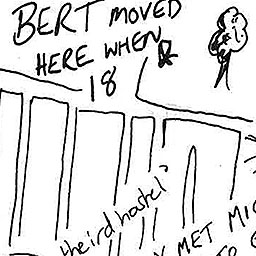 BERT MOVED
HERE WHEN
18
"their hostel"
MET MIC
TO